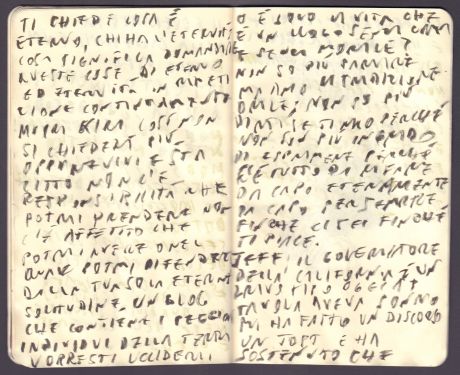 TI CHIEDE COSA È
ETERNO, CHI HA L'ETERNITÀ
COSA SIGNIFICA
ESSE DI ETERNO
ED ETERNITÀ IN RIPETI
ZIONE CONTINUAMENTE
COSÌ NON
SI CHIEDERÀ PIÙ
OPPURE VIVI E STA
ZITTO NON C'È
RESPONSABILITÀ CHE
POTRAI PRENDERE NON
C'È AFFETTO CHE
POTRAI AVERE O NEL
QUALE POTRAI DIFENDERE
DALLA TUA SOLA ETERNA
SOLITUDINE. UN BLOG
CHE CONTIENE I PEGGIORI
INDIVIDUI DELLA TERRA
VORRESTI UCCIDERLI
O È SOLO LA VITA CHE
È UN LUOGO SENZA
E SENZA
NON SO PIÙ PARLARE
MIAMO
NON SO PIÙ
DIRTI SE TI AMO PERCHÉ
NON SON PIÙ IN GRADO
DI ESPRIMERE PERCHÉ
È TUTTO DA
DA CAPO ETERNAMENTE
DA CAPO PER SEMPRE
FINCHÉ CI SEI FINCHÉ
TI PIACE.
JEFF, IL GOVERNATORE
DELLA CALIFORNIA È UN
TIPO OGGI A
TAVOLA AVEVA SONNO
POI HA FATTO UN DISCORSO
UN TOST E HA
SOSTENUTO CHE